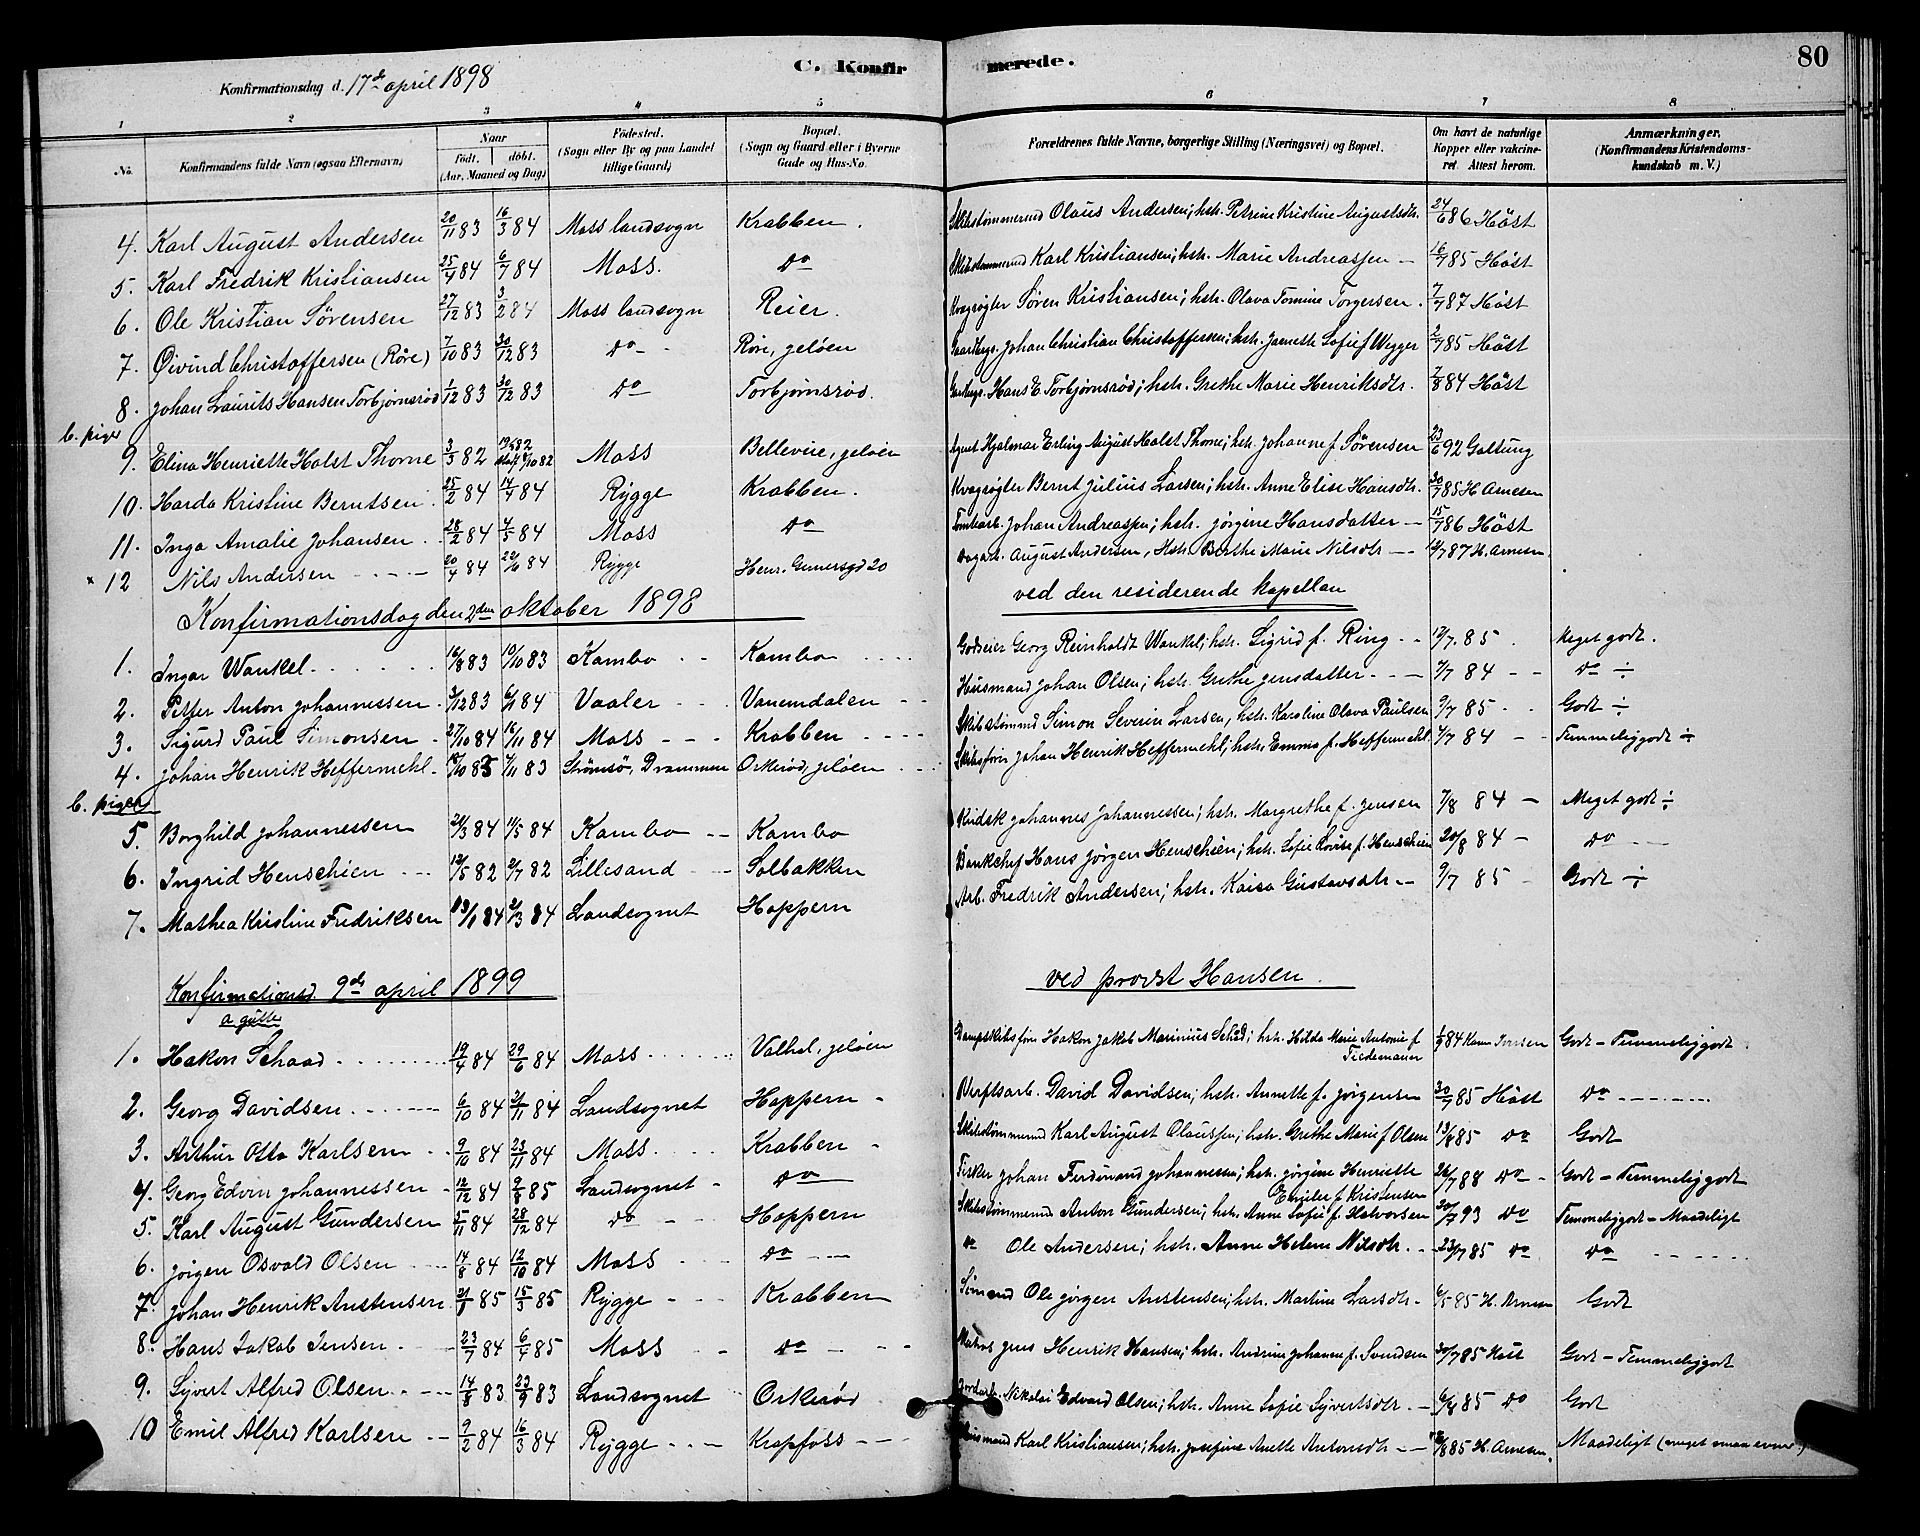 80
C. Konfirmerede.
Konfirmationsdag d. 17de april 1898
1 2 3 4 5 6 7 8
No. Konfirmandens fulde Navn (ogsaa Efternavn) Naar født. døbt. (Aar, Maaned og Dag) Fødested. (Sogn eller By og paa Landet tillige Gaard) Bopæl. (Sogn og Gaard eller i Byerne Gade og Hus-No. Forældrenes fulde Navne, borgerlige Stilling (Næringsvei) og Bopæl. Om havt de naturlige Kopper eller vakcineret. Attest herom. Anmærkninger. (Konfirmandens Kristendomskundskab m. V.)
4. Karl August Andersen 20/11 83 16/3 84 Moss landsogn Krabben. Skibstømmermd Olaus Andersen; hstr. Petrine Kristine Augustsdtr. 24/6 86 Höst
5. Karl Fredrik Kristiansen 25/4 84 6/7 84 Moss. Do Skibstømmermd Karl Kristiansen; hstr. Marie Andreassen - 16/7 85 Höst
6. Ole Kristian Sørensen 27/12 83 3/2 84 Moss landsogn Reier. Kvægrøgter Søren Kristiansen; hstr. Olava Tomine Torgersen. 7/7 87 Höst
7. Øivind Christoffersen (Röre) 7/10 83 30/12 83 Do - Röre, jeløen Gaardbrgr. Johan Christian Christoffersen; hstr. Jeanette Sofie f Wegger 2/7 85 Höst
8. Johan Laurits Hansen Torbjørnsrød 1/12 83 30/12 83 Do Torbjørnsrød. Gaardbrgr. Hans E. Torbjørnsrød; hstr. Grethe Marie Henriksdtr. 7/8 84 Höst
b. piger
9. Elina Henriette Holst Thorne 3/3 82 82 Moss Bellevue, jeløen Agent Hjalmar Erling August Holst Thorne; hstr. Johanne f. Sørensen 23/6 92 Galtung
10. Harda Kristine Berntsen. 25/2 84 14/4 84 Rygge Krabben. Kvægrøgter Bernt Julius Larsen; hstr. Anne Elise Hansdtr. 30/7 85 H. Arnesen
11. Inga Amalie Johansen. 28/2 84 4/5 84 Moss Do Tomtearb. Johan Andreassen; hstr. Jørgine Hansdatter - 15/7 86 Höst
x 12 Nils Andersen 20/4 84 22/6 84 Rygge Henr. Gernersgd 20 Dagarb. August Andersen, Hstr. Berthe Marie Nilsdtr - - 12/7 87 H. Arnesen
Konfirmationsdag den 2den oktober 1898 ved den residerende kapellan
1. Ingar Wankel. 16/8 83 10/10 83 Kambo Kambo Godseier Georg Reinholdt Wankel; hstr. Sigrid f. Ring - - 12/7. 85. Meget godt.
2. Petter Anton Johannessen. 3/12 83 6/1 84 Vaaler Vanemdalen Husmand Johan Olsen; hstr. Grethe Jensdatter 7/7 84 Do ÷
3. Sigurd Paul Simonsen 27/10 84 16/11 84 Moss Krabben Skibstømmd Simon Severin Larsen, hstr. Karoline Olava Paulsen 9/7 85 Godt ÷
4. Johan Henrik Heffermehl 18/10 83 7/11 83 Strømsö, Drammen Orkerød, jeløen Skibsfører Johan Henrik Heffermehl; hstr. Emma f. Heffermehl 7/7 84 Temmeliggodt ÷
b. piger
5. Borghild Johannessen 21/3 84 11/5 84 Kambo Kambo Kudsk Johannes Johannessen; hstr. Margrethe f. Jensen 7/8 84 - Meget godt ÷
6. Ingrid Henschien 12/5 82 2/7 82 Lillesand Solbakken Bankchef Hans Jörgen Henschien; hstr. Sofie Lovise f. Henschien 20/8 84 - Do
7. Mathea Kristine Fredriksen 13/1 84 2/3 84 Landsognet Hoppern Arb. Fredrik Andersen; hstr. Kaisa Gustavsdtr - 9/7 85 - Godt ÷
Konfirmationsd. 9de april 1899 ved provst Hansen.
a gutter
1. Hakon Schaad 19/4 84 29/6 84 Moss Valhal, jeløen Dampskibsfører Hakon Jakob Marinius Schad; hstr. Hilda Marie Antonie f Tiedemann 84 Karen Iversen Godt - Temmeliggodt.
2. Georg Davidsen 6/10 84 2/11 84 Landsognet Hoppern - Verftsarb. David Davidsen; hstr. Annette f. Jørgensen 30/7 85 Höst Do
3. Arthur Otto Karlsen 9/10 84 23/11 84 Moss Krabben - Skibstømmermd Karl August Olaussen; hstr. Grethe Marie f Olsen 13/8 85 Do Godt
4. Georg Edvin Johannessen 12/12 84 85 Landsognet - Do Fisker Johan Ferdinand Johannessen; hstr. Jörgine Henriette Emilie f. Kristensen 26/7 88 Do - Godt - Temmeliggodt
5. Karl August Gundersen 5/11 84 28/12 84 Do - Hoppern Skibstømmermd Anton Gundersen; hstr. Anne Sofie f. Halvorsen 20/7 93 Do Temmeliggodt - Maadeligt
6. Jörgen Osvald Olsen 14/8 84 12/10 84 Moss Do Do Ole Andersen; hstr. Anne Helene Nilsdtr. 23/7 85 Do Do
7. Johan Henrik Anstensen 21/1 85 15/3 85 Rygge Krabben Sømand Ole Jörgen Anstensen; hstr. Martine Larsdtr - 6/5 85 H. Arnesen Godt
8. Hans Jakob Jensen 23/7 84 6/4 85 Moss Do Jens Henrik Hansen; hstr. Andrine Johanne f. Svendsen 30/7 85 Höst Godt - Temmeliggodt
9. Syvert Alfred Olsen 14/8 83 23/9 83 Landsognet Orkerød Jordarb. Nikolai Edvard Olsen; hstr. Anne Sofie Syvertsdtr. 6/8 85 Do Godt
10 Emil Alfred Karlsen 9/2 84 16/3 84 Rygge Krapfoss Husmand Karl Kristiansen; hstr. Josefine Anette Antonsdtr 85 H. Arnesen. Maadeligt (meget smaa evner)